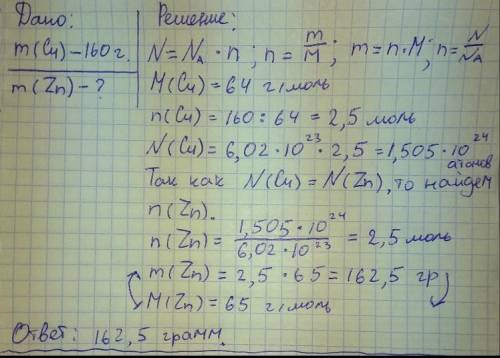 Дано:
m(Cu) – 160 г.
m(Zn) – ?
Решение:
N = N_A · n ; n = m/M ; m = n · M ; n = N/N_A
M(Cu) = 64 г/моль
n(Cu) = 160 : 64 = 2,5 моль
N(Cu) = 6,02 · 10^23 · 2,5 = 1,505 · 10^24
атомов
Так как N(Cu) = N(Zn), то найдем
n(Zn).
n(Zn) = 1,505 · 10^24 / 6,02 · 10^23 = 2,5 моль
m(Zn) = 2,5 · 65 = 162,5 гр
M(Zn) = 65 г/моль
Ответ: 162,5 грамм.